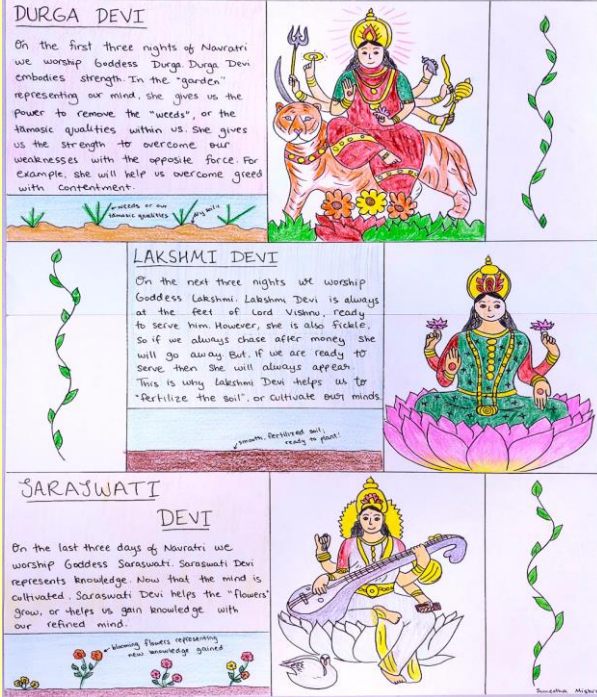 DURGA DEVI
On the first three nights of Navratri
we worship Goddess Durga. Durga Devi
embodies strength. In the "garden"
representing our mind, she gives us the
power to remove the "weeds", or the
tamasic qualities within us. She gives
us the strength to overcome our
weaknesses with the opposite force. For
example, she will help us overcome greed
with contentment.
weeds or our
tamasic qualities
dry soil
LAKSHMI DEVI
On the next three nights we worship
Goddess Lakshmi. Lakshmi Devi is always
at the feet of Lord Vishnu, ready
to serve him. However, she is also fickle,
so if we always chase after money she
will go away. But, if we are ready to
serve then she will always appear.
This is why Lakshmi Devi helps us to
"fertilize the soil", or cultivate our minds.
smooth, fertilized soil,
ready to plant!
SARASWATI
DEVI
On the last three days of Navratri we
worship Goddess Saraswati. Saraswati Devi
represents knowledge. Now that the mind is
cultivated, Saraswati Devi helps the "flowers"
grow, or helps us gain knowledge with
our refined mind.
blooming flowers representing
new knowledge gained